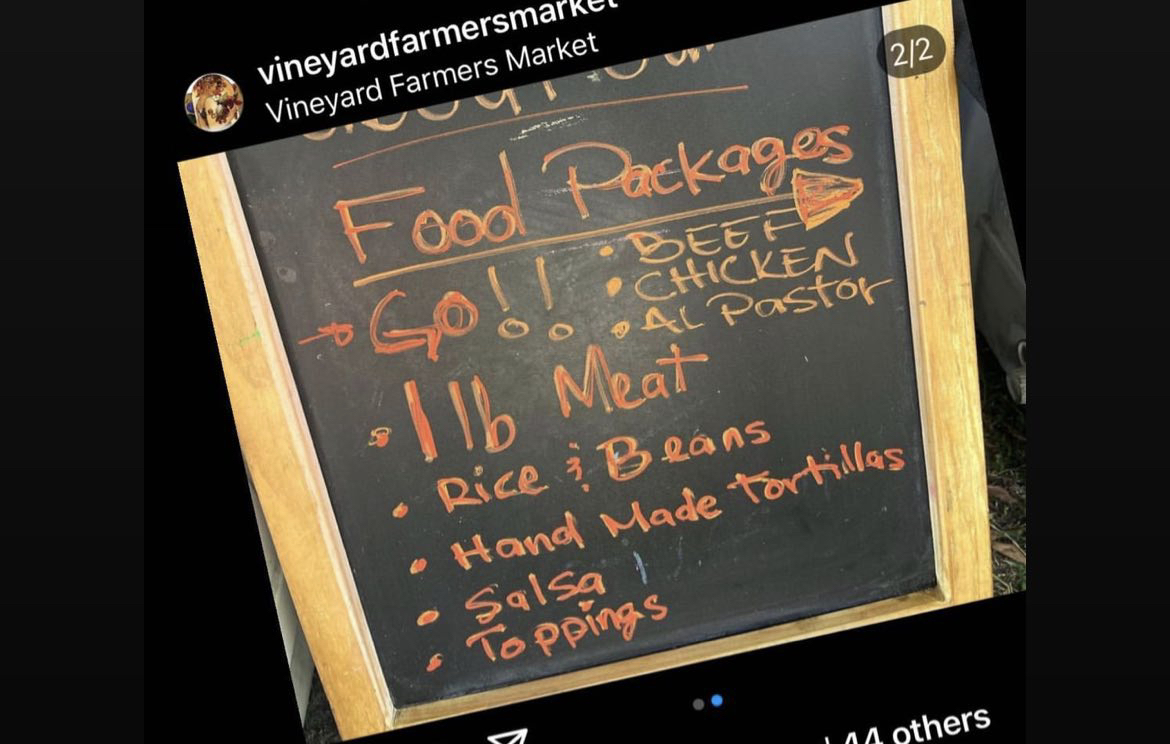 vineyardfarmersmarket
Vineyard Farmers Market
2/2
Food Packages
Go!!
• BEEF
• CHICKEN
• Al Pastor
• 1 lb Meat
• Rice & Beans
• Hand Made Tortillas
• Salsa
• Toppings
44 others